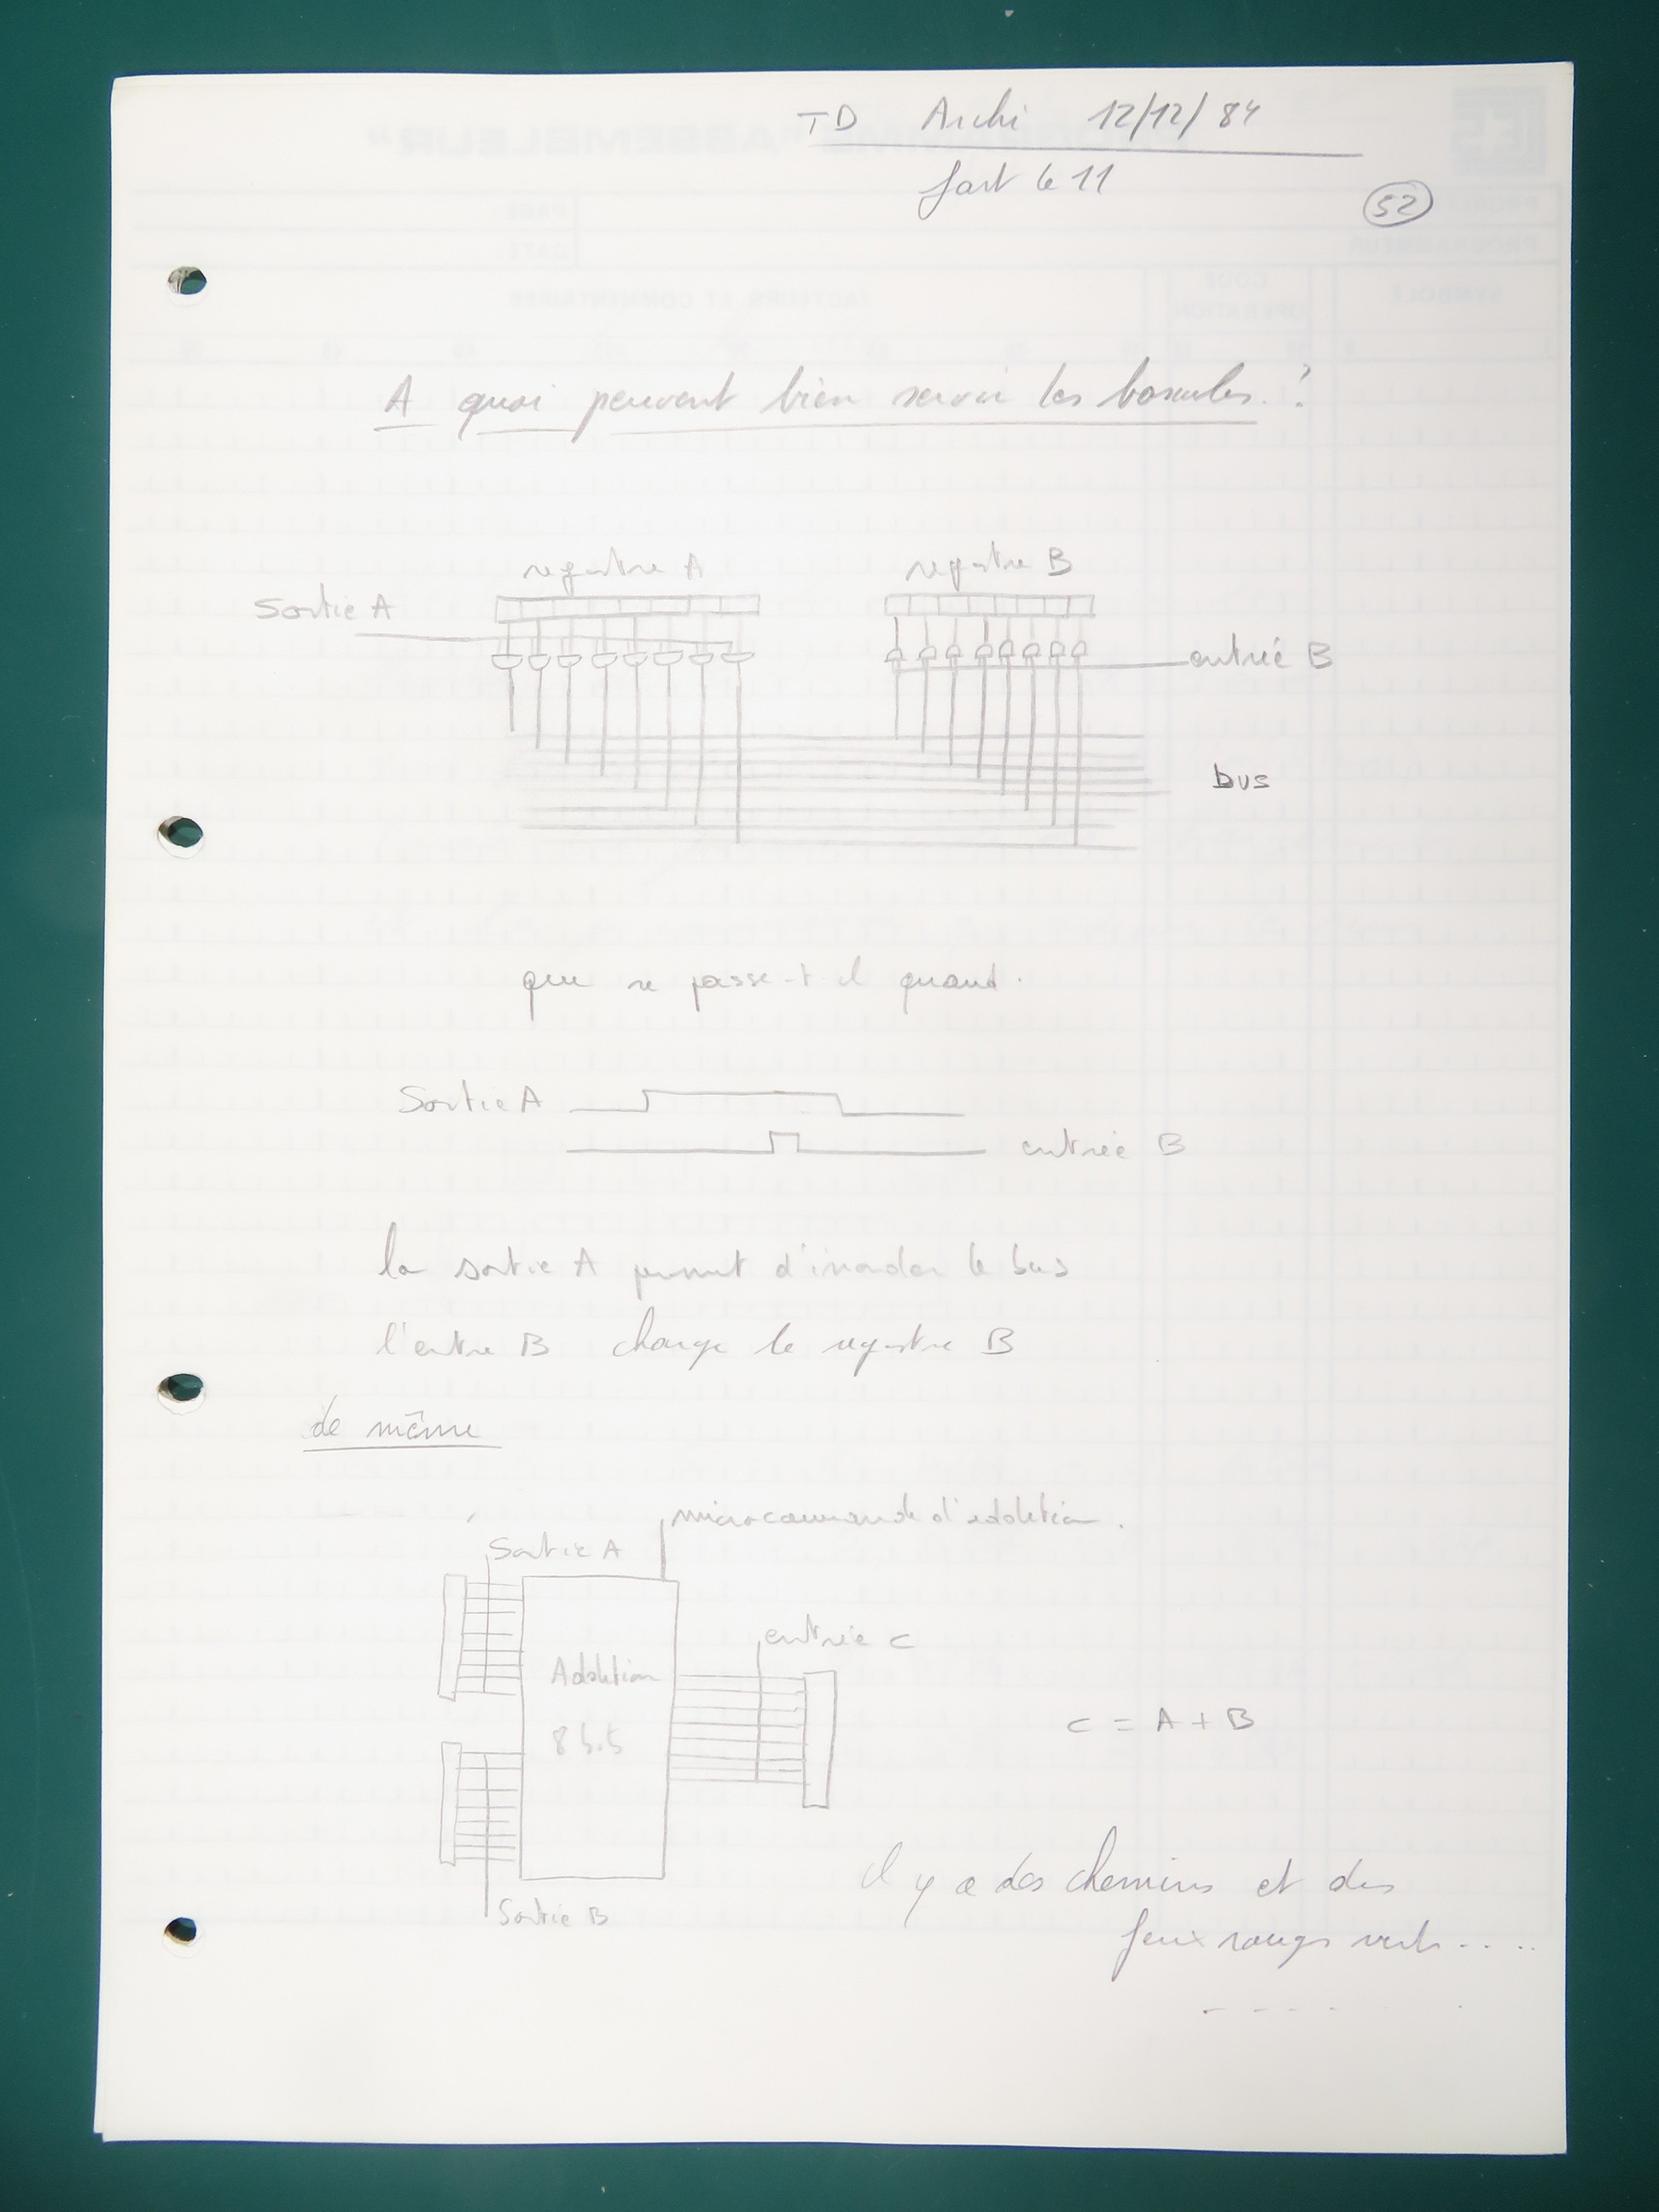 TD Archi 12/12/84
fait le 11
52
A quoi peuvent bien servir les bascules ?
registre A
registre B
Sortie A
entrée B
bus
que se passe-t-il quand.
Sortie A
entrée B
la sortie A permet d'inonder le bus
l'entre B charge le registre B
de même
microcommande d'addition.
Sortie A
entrée C
Addition
8 bits
C = A + B
Sortie B
il y a des chemins et des
feux rouges verts....